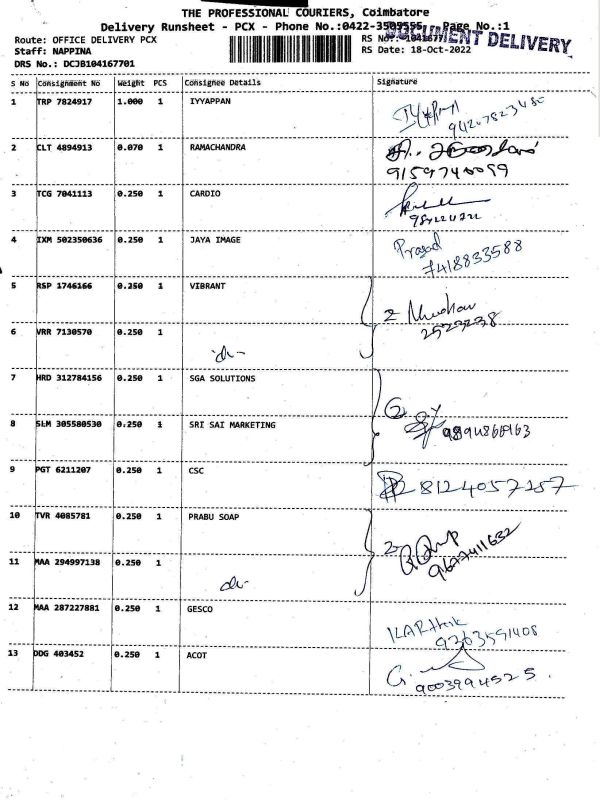 THE PROFESSIONAL COURIERS, Coimbatore
Delivery Runsheet - PCX - Phone No.:0422-3505556, Page No.:1
DOCUMENT DELIVERY
Route: OFFICE DELIVERY PCX RS No:
Staff: NAPPINA RS Date: 18-Oct-2022
DRS No.: DCJB104167701
S No Consignment No Weight PCS Consignee Details Signature
1 TRP 7824917 1.000 1 IYYAPPAN
2 CLT 4894913 0.070 1 RAMACHANDRA
9159740099
3 TCG 7041113 0.250 1 CARDIO
4 IXM 502350636 0.250 1 JAYA IMAGE Prasad
7418833588
5 RSP 1746166 0.250 1 VIBRANT 2
2523238
6 VRR 7130570 0.250 1 do-
7 HRD 312784156 0.250 1 SGA SOLUTIONS 2
8 SLM 305580530 0.250 1 SRI SAI MARKETING
9 PGT 6211207 0.250 1 CSC 8124057257
10 TVR 4085781 0.250 1 PRABU SOAP 2
9677411632
11 MAA 294997138 0.250 1 do-
12 MAA 287227881 0.250 1 GESCO KARthik
9363591408
13 DDG 403452 0.250 1 ACOT G.
9003994525.